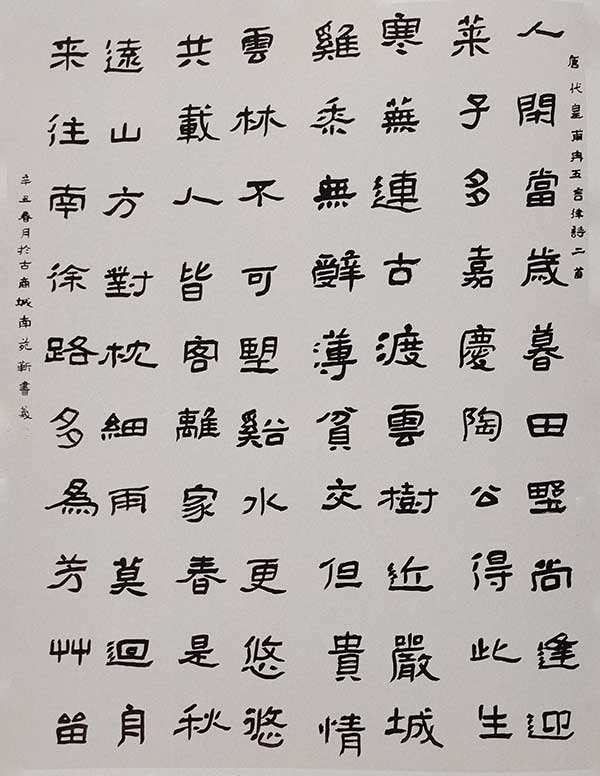 唐代皇甫冉五言律詩二首
人閑當歲暮田野尚逢迎
萊子多嘉慶陶公得此生
寒蕪連古渡雲樹近嚴城
雞黍無辭薄貧交但貴情
雲林不可望谿水更悠悠
共載人皆客離家春是秋
遠山方對枕細雨莫迴舟
来往南徐路多為芳艸留
辛丑春月於古商城南苑靳書義